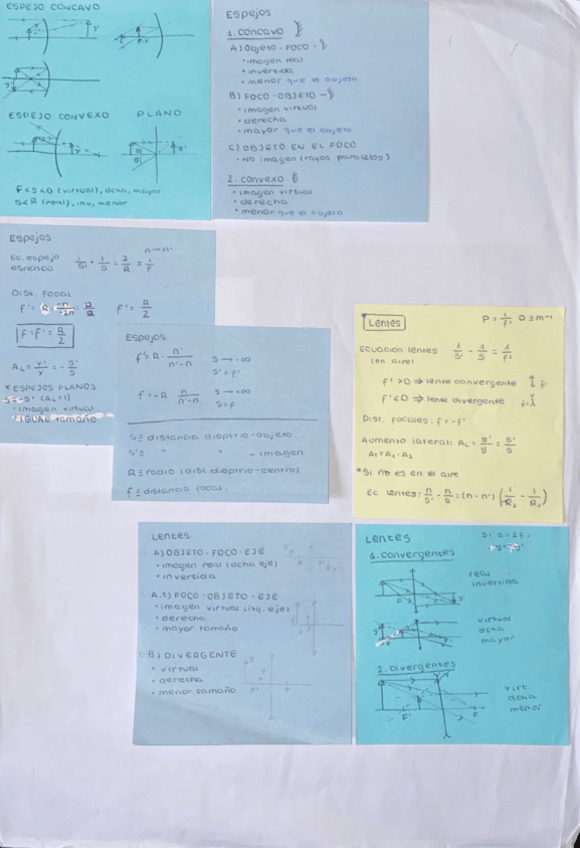 ESPEJO CÓNCAVO
ESPEJO CONVEXO PLANO
f<s<0 (virtual), dcha, mayor
s<R (real), inv, menor
Espejos
1. concavo
A) Objeto - FOCO -
• imagen real
• invertida
• menor que el objeto
B) FOCO - OBJETO -
• imagen virtual
• derecha
• mayor que el objeto
C) OBJETO EN EL FOCO
- NO imagen (rayos paralelos)
2. convexo
• imagen virtual
• derecha
• menor que el objeto
Espejos
n → n'
Ec. espejo esférico 1/s' + 1/s = 2/R = 1/f
Dist. focal
f' = R/2
f = f' = R/2
AL = y'/y = -s'/s
* ESPEJOS PLANOS
s = -s' (AL=1)
• imagen virtual
• IGUAL tamaño
Espejos
f' = R · n'/(n'-n) s → -∞
s' = f'
f = -R · n/(n'-n) s' → +∞
s = f
s ≡ distancia dioptrio - objeto
s' ≡ " " - imagen
R ≡ radio (dist dioptrio - centro)
f ≡ distancia focal
Lentes
P = 1/f' D ≡ m-1
Ecuación lentes 1/s' - 1/s = 1/f'
(en aire)
f' > 0 ⇒ lente convergente
f' < 0 ⇒ lente divergente
Dist. focales: f = -f'
Aumento lateral: AL = y'/y = s'/s
AT = A1 · A2
* Si no es en el aire
Ec lentes: n/s' - n/s = (n - n') (1/R2 - 1/R1)
Lentes
A) OBJETO - FOCO - EJE
• imagen real (dcha eje)
• invertida
A.1) FOCO - OBJETO - EJE
• imagen virtual (izq. eje)
• derecha
• mayor tamaño
B) DIVERGENTE
• virtual
• derecha
• menor tamaño
Lentes
Si s=2f:
1. convergentes
real
invertida
virtual
dcha
mayor
2. Divergentes
virt.
dcha
menor
F'
F